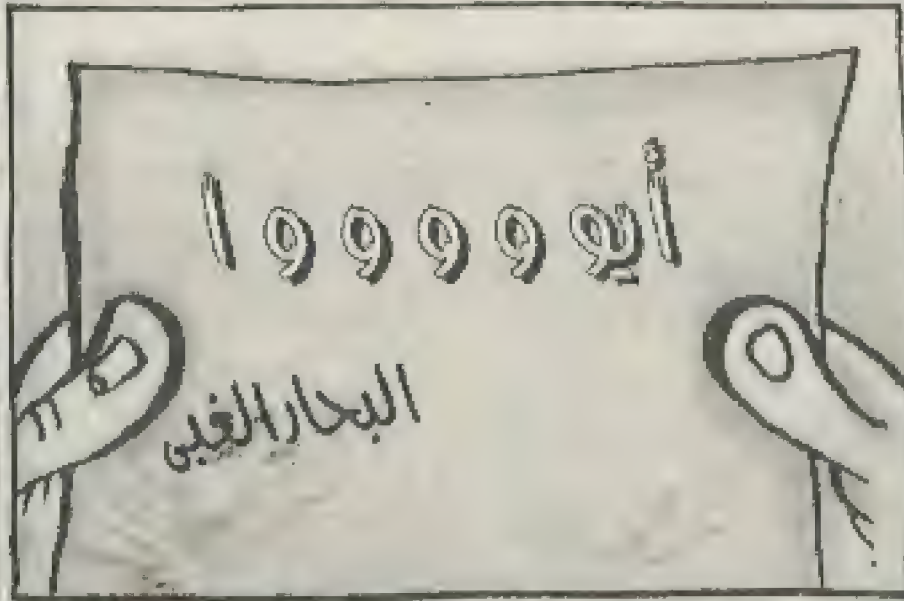 أيو و و و و ا
البحار الغبى